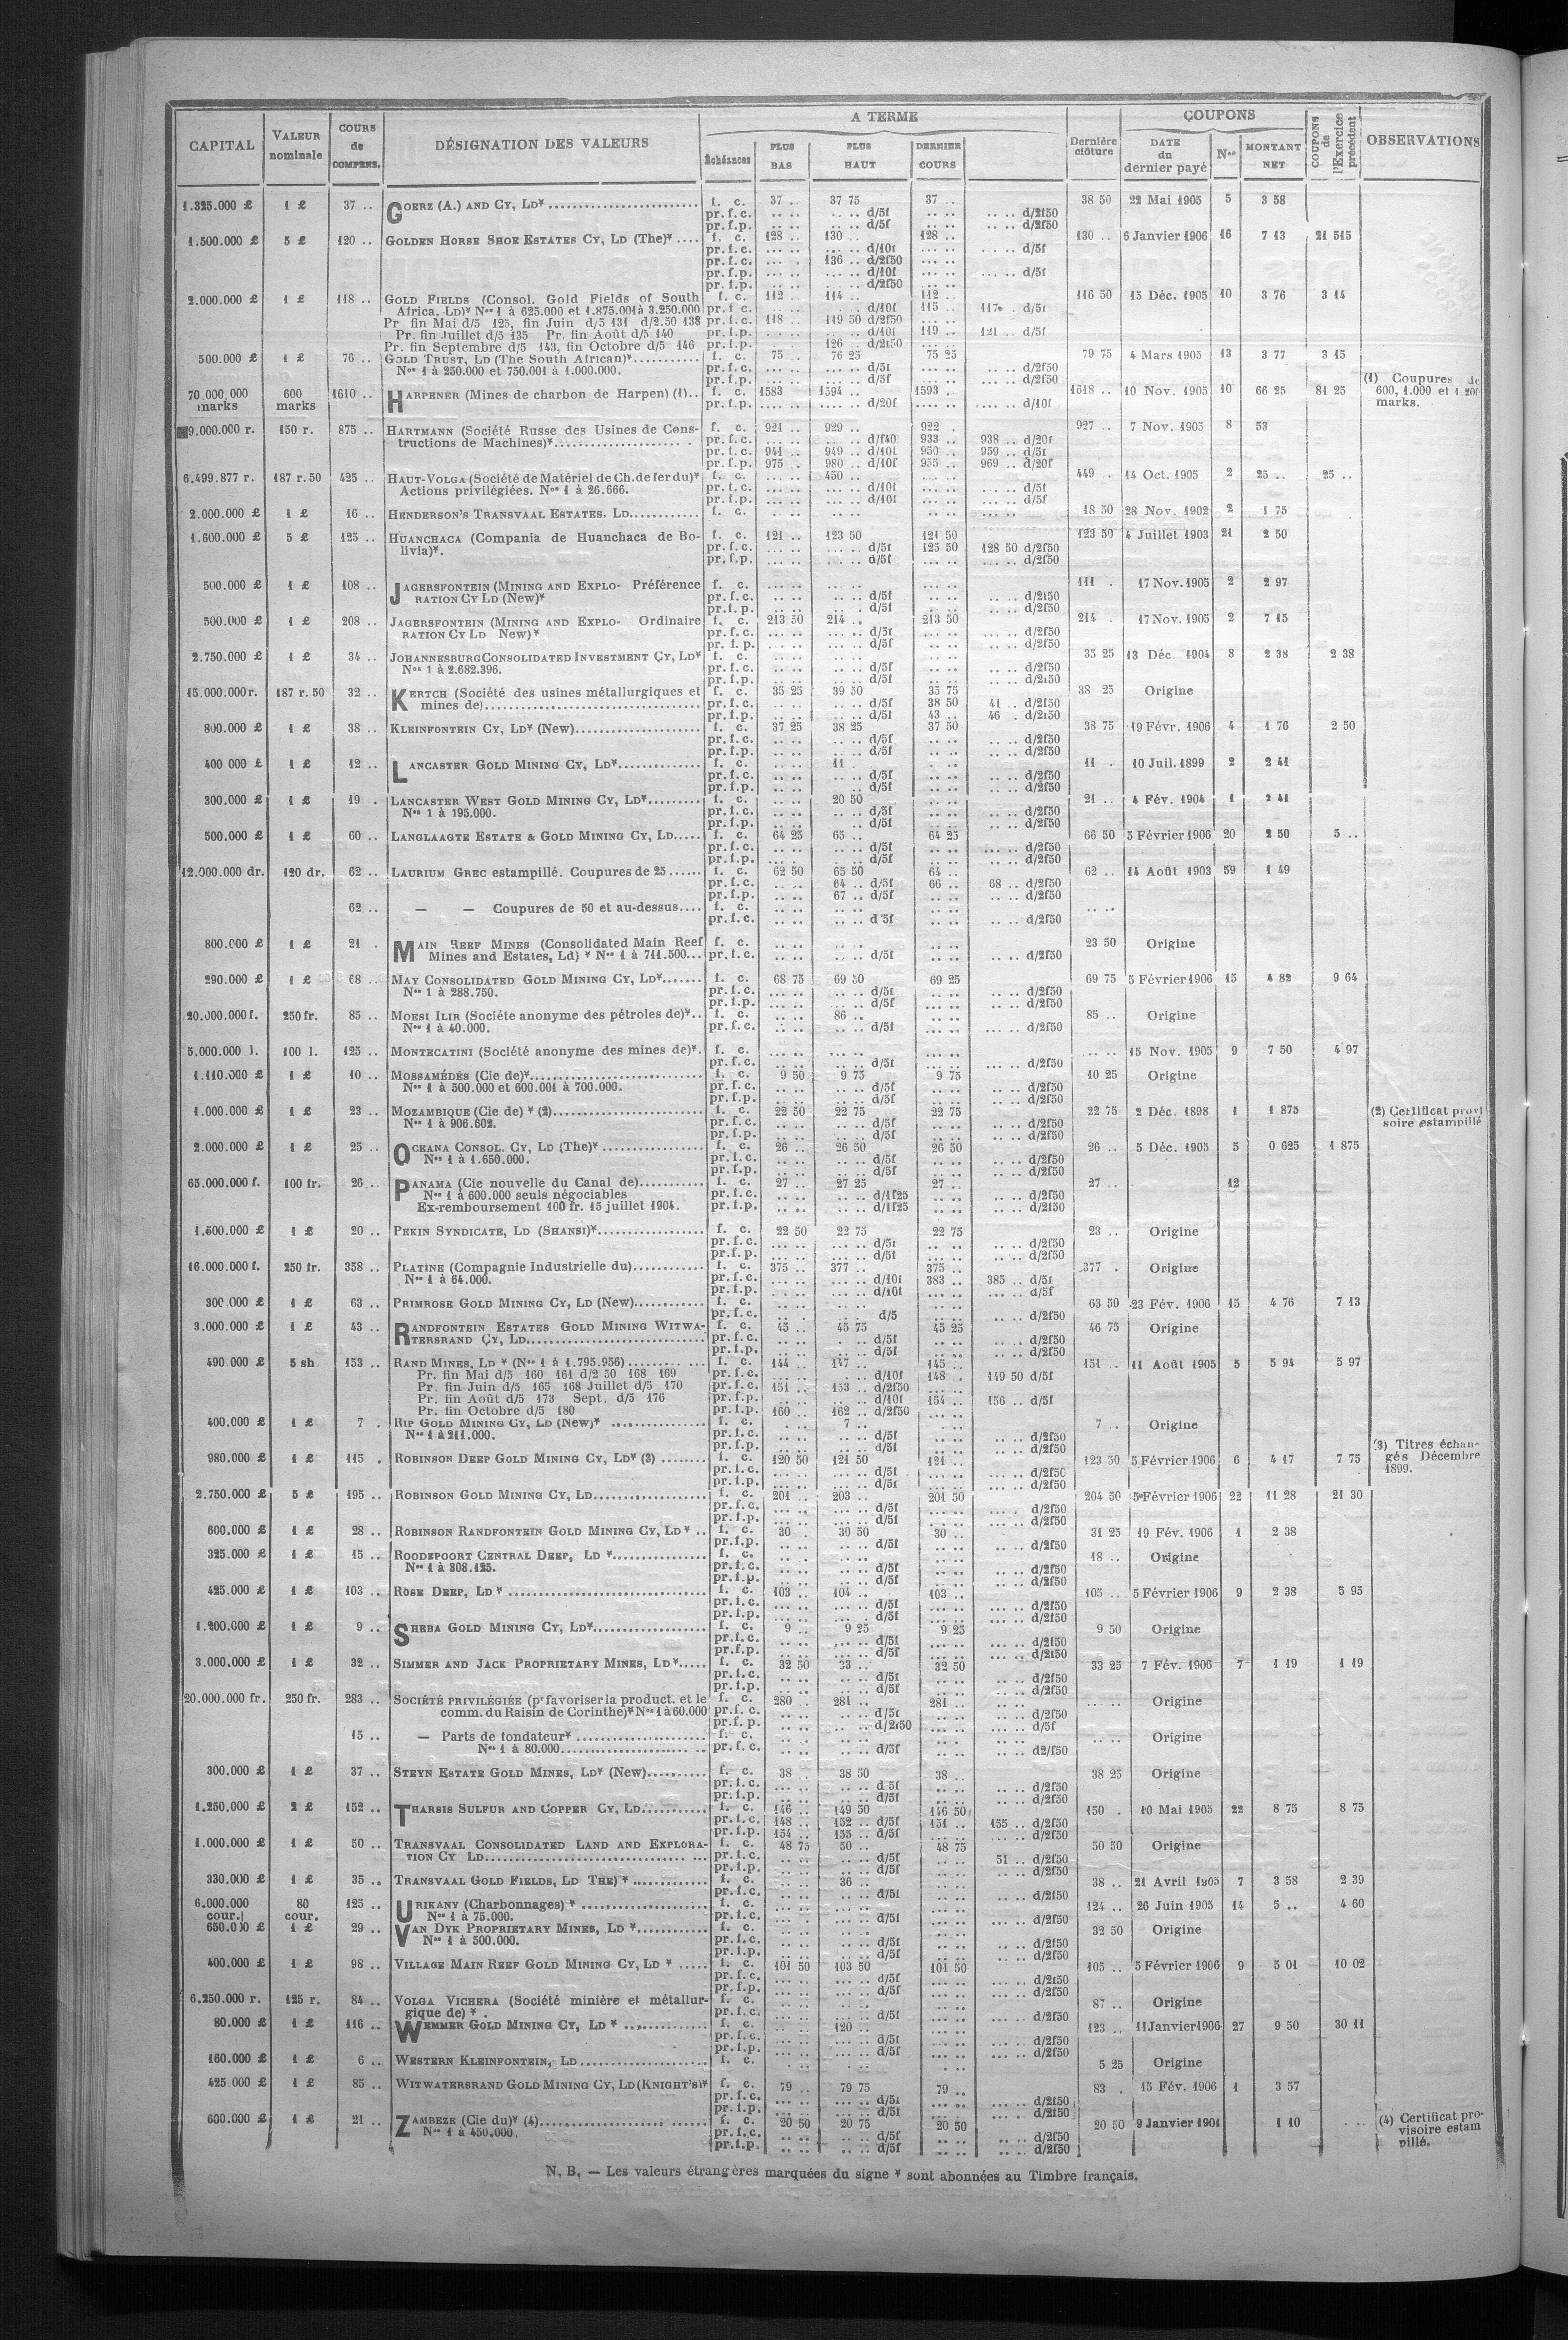 CAPITAL | VALEUR nominale | COURS de COMPENS. | DÉSIGNATION DES VALEURS | A TERME | Dernière clôture | COUPONS | COUPONS de l'Exercice précédent | OBSERVATIONS
Échéances | PLUS BAS | PLUS HAUT | DERNIER COURS | DATE du dernier payé | Nos | MONTANT NET
1.325.000 £ 1 £ 37 .. GOERZ (A.) AND CY, LD* f. c. 37 .. 37 75 37 .. 38 50 22 Mai 1905 5 3 58
pr. f. c. .. .. .. .. d/5f .. .. .. .. d/2f50
pr. f. p. .. .. .. .. d/5f .. .. .. .. d/2f50
1.500.000 £ 5 £ 120 .. GOLDEN HORSE SHOE ESTATES CY, LD (The)* f. c. 128 .. 130 .. 128 .. 130 .. 6 Janvier 1906 16 7 13 21 515
pr. f. c. .... .. .... .. d/10f .... .. .... .. d/5f
pr. f. c. 136 .. d/2f50
pr. f. p. d/10f d/5f
pr. f. p. d/2f50
2.000.000 £ 1 £ 118 .. GOLD FIELDS (Consol. Gold Fields of South f. c. 112 .. 114 .. 112 .. 116 50 15 Déc. 1905 10 3 76 3 14
Africa, Ld)* Nos 1 à 625.000 et 1.875.001 à 3.250.000 pr. f. c. d/10f 115 .. 117 . d/5f
Pr fin Mai d/5 125, fin Juin d/5 131 d/2.50 138 pr. f. c. 118 .. 119 50 d/2f50
Pr. fin Juillet d/5 135 Pr. fin Août d/5 140 pr. f. p. d/10f 119 .. 121 .. d/5f
Pr. fin Septembre d/5 143, fin Octobre d/5 146 pr. f. p. 126 . d/2f50
500.000 £ 1 £ 76 .. GOLD TRUST, LD (The South African)* f. c. 75 .. 76 25 75 25 79 75 4 Mars 1905 13 3 77 3 15
Nos 1 à 250.000 et 750.001 à 1.000.000. pr. f. c. d/5f d/2f50
pr. f. p. d/5f d/2f50
70.000.000 marks 600 marks 1610 .. HARPENER (Mines de charbon de Harpen) (1).. f. c. 1583 1594 .. 1593 . 1618 .. 10 Nov. 1905 10 66 25 81 25 (1) Coupures de 600, 1.000 et 1.200 marks.
pr. f. p. d/20f d/10f
9.000.000 r. 150 r. 875 .. HARTMANN (Société Russe des Usines de Cons- f. c. 921 .. 929 .. 922 . 927 .. 7 Nov. 1905 8 53
tructions de Machines)* pr. f. c. d/f40 933 .. 938 .. d/20f
pr. f. c. 941 .. 949 .. d/10f 950 .. 959 .. d/5f
pr. f. p. 975 . 980 .. d/10f 955 .. 969 .. d/20f
6.499.877 r. 187 r. 50 425 .. HAUT-VOLGA (Société de Matériel de Ch. de fer du)* f. c. 450 .. 449 . 14 Oct. 1905 2 25 .. 25 ..
Actions privilégiées. Nos 1 à 26.666. pr. f. c. d/10f d/5f
pr. f. p. d/10f d/5f
2.000.000 £ 1 £ 16 .. HENDERSON'S TRANSVAAL ESTATES. LD f. c. 18 50 28 Nov. 1902 2 1 75
1.600.000 £ 5 £ 125 .. HUANCHACA (Compania de Huanchaca de Bo- f. c. 121 .. 123 50 121 50 123 50 4 Juillet 1903 21 2 50
livia)*. pr. f. c. d/5f 125 50 128 50 d/2f50
pr. f. p. d/5f d/2f50
500.000 £ 1 £ 108 .. JAGERSFONTEIN (MINING AND EXPLO- Préférence f. c. 111 . 17 Nov. 1905 2 2 97
RATION CY LD (New)* pr. f. c. d/5f d/2f50
pr. f. p. d/5f d/2f50
500.000 £ 1 £ 208 .. JAGERSFONTEIN (MINING AND EXPLO- Ordinaire f. c. 213 50 214 .. 213 50 214 . 17 Nov. 1905 2 7 15
RATION CY LD New)* pr. f. c. d/5f d/2f50
pr. f. p. d/5f d/2f50
2.750.000 £ 1 £ 34 .. JOHANNESBURG CONSOLIDATED INVESTMENT CY, LD* f. c. 35 25 13 Déc. 1904 8 2 38 2 38
Nos 1 à 2.682.396. pr. f. c. d/5f d/2f50
pr. f. p. d/5f d/2f50
15.000.000 r. 187 r. 50 32 .. KERTCH (Société des usines métallurgiques et f. c. 35 25 39 50 35 75 38 25 Origine
mines de) pr. f. c. d/5f 38 50 41 .. d/2f50
pr. f. p. d/5f 43 .. 46 . d/2f50
800.000 £ 1 £ 38 .. KLEINFONTEIN CY, LD* (New) f. c. 37 25 38 25 37 50 38 75 19 Févr. 1906 4 1 76 2 50
pr. f. c. d/5f d/2f50
pr. f. p. d/5f d/2f50
400 000 £ 1 £ 12 .. LANCASTER GOLD MINING CY, LD* f. c. 11 11 . 10 Juil. 1899 2 2 41
pr. f. c. d/5f d/2f50
pr. f. p. d/5f d/2f50
300.000 £ 1 £ 19 . LANCASTER WEST GOLD MINING CY, LD* f. c. 20 50 21 .. 4 Fév. 1904 1 2 41
Nos 1 à 195.000. pr. f. c. d/5f d/2f50
pr. f. p. d/5f d/2f50
500.000 £ 1 £ 60 .. LANGLAAGTE ESTATE & GOLD MINING CY, LD f. c. 64 25 65 .. 64 25 66 50 5 Février 1906 20 2 50 5 ..
pr. f. c. d/5f d/2f50
pr. f. p. d/5f d/2f50
12.000.000 dr. 120 dr. 62 .. LAURIUM GREC estampillé. Coupures de 25 f. c. 62 50 65 50 64 .. 62 .. 14 Août 1903 59 1 49
pr. f. c. 64 .. d/5f 66 .. 68 .. d/2f50
pr. f. p. 67 .. d/5f d/2f50
62 .. — — Coupures de 50 et au-dessus f. c.
pr. f. c. d 5f d/2f50
800.000 £ 1 £ 21 . MAIN REEF MINES (Consolidated Main Reef f. c. 23 50 Origine
Mines and Estates, Ld) * Nos 1 à 711.500 pr. f. c. d/5f d/2f50
290.000 £ 1 £ 68 .. MAY CONSOLIDATED GOLD MINING CY, LD* f. c. 68 75 69 50 69 25 69 75 5 Février 1906 15 4 82 9 64
Nos 1 à 288.750. pr. f. c. d/5f d/2f50
pr. f. p. d/5f d/2f50
20.000.000 f. 250 fr. 85 .. MOESI ILIR (Sociéte anonyme des pétroles de)* f. c. 86 .. 85 .. Origine
Nos 1 à 40.000. pr. f. c. d/5f d/2f50
5.000.000 l. 100 l. 125 .. MONTECATINI (Société anonyme des mines de)*. f. c. 15 Nov. 1905 9 7 50 4 97
pr. f. c. d/5f d/2f50
1.110.000 £ 1 £ 10 .. MOSSAMÉDÈS (Cie de)* f. c. 9 50 9 75 9 75 10 25 Origine
Nos 1 à 500.000 et 600.001 à 700.000. pr. f. c. d/5f d/2f50
pr. f. p. d/5f d/2f50
1.000.000 £ 1 £ 23 .. MOZAMBIQUE (Cie de) * (2) f. c. 22 50 22 75 22 75 22 75 2 Déc. 1898 1 1 875 (2) Certificat provi soire estampillé
Nos 1 à 906.602. pr. f. c. d/5f d/2f50
pr. f. p. d/5f d/2f50
2.000.000 £ 1 £ 25 .. OCEANA CONSOL. CY, LD (The)* f. c. 26 .. 26 50 26 50 26 .. 5 Déc. 1905 5 0 625 1 875
Nos 1 à 1.650.000. pr. f. c. d/5f d/2f50
pr. f. p. d/5f d/2f50
65.000.000 f. 100 fr. 26 .. PANAMA (Cie nouvelle du Canal de) f. c. 27 .. 27 25 27 .. 27 .. 12
Nos 1 à 600.000 seuls négociables pr. f. c. d/1f25 d/2f50
Ex-remboursement 100 fr. 15 juillet 1904. pr. f. p. d/1f25 d/2f50
1.500.000 £ 1 £ 20 .. PEKIN SYNDICATE, LD (SHANSI)* f. c. 22 50 22 75 22 75 23 .. Origine
pr. f. c. d/5f d/2f50
pr. f. p. d/5f d/2f50
16.000.000 f. 250 fr. 358 .. PLATINE (Compagnie Industrielle du) f. c. 375 .. 377 .. 375 .. 377 . Origine
Nos 1 à 64.000. pr. f. c. d/10f 383 .. 385 .. d/5f
pr. f. p. d/10f d/5f
300.000 £ 1 £ 63 .. PRIMROSE GOLD MINING CY, LD (New) f. c. 63 50 23 Fév. 1906 15 4 76 7 13
pr. f. c. d/5 d/2f50
3.000.000 £ 1 £ 43 .. RANDFONTEIN ESTATES GOLD MINING WITWA- f. c. 45 .. 45 75 45 25 46 75 Origine
TERSRAND CY, LD pr. f. c. d/5f d/2f50
pr. f. p. d/5f d/2f50
490.000 £ 5 sh 153 .. RAND MINES, LD * (Nos 1 à 1.795.956) f. c. 144 .. 147 .. 145 .. 151 .. 11 Août 1905 5 5 94 5 97
Pr. fin Mai d/5 160 161 d/2 50 168 169 pr. f. c. d/10f 148 . 149 50 d/5f
Pr. fin Juin d/5 165 168 Juillet d/5 170 pr. f. c. 151 .. 153 .. d/2f50
Pr. fin Août d/5 173 Sept. d/5 176 pr. f. p. d/10f 154 .. 156 .. d/5f
Pr. fin Octobre d/5 180 pr. f. p. 160 .. 162 .. d/2f50
400.000 £ 1 £ 7 . RIP GOLD MINING CY, LD (New)* f. c. 7 .. 7 .. Origine
Nos 1 à 211.000. pr. f. c. d/5f d/2f50
pr. f. p. d/5f d/2f50
980.000 £ 1 £ 115 . ROBINSON DEEP GOLD MINING CY, LD* (3) f. c. 120 50 121 50 121 .. 123 50 5 Février 1906 6 4 17 7 75 (3) Titres échan- gés Décembre 1899.
pr. f. c. d/5f d/2f50
pr. f. p. d/5f d/2f50
2.750.000 £ 5 £ 195 .. ROBINSON GOLD MINING CY, LD f. c. 201 .. 203 .. 201 50 204 50 5 Février 1906 22 11 28 21 30
pr. f. c. d/5f d/2f50
pr. f. p. d/5f d/2f50
600.000 £ 1 £ 28 .. ROBINSON RANDFONTEIN GOLD MINING CY, LD * f. c. 30 . 30 50 30 .. 31 25 19 Fév. 1906 1 2 38
pr. f. p. d/5f d/2f50
325.000 £ 1 £ 15 .. ROODEPOORT CENTRAL DEEP, LD * f. c. 18 .. Origine
Nos 1 à 308.125. pr. f. c. d/5f d/2f50
pr. f. p. d/5f d/2f50
425.000 £ 1 £ 103 .. ROSE DEEP, LD * f. c. 103 .. 104 .. 103 .. 105 .. 5 Février 1906 9 2 38 5 95
pr. f. c. d/5f d/2f50
pr. f. p. d/5f d/2f50
1.200.000 £ 1 £ 9 .. SHEBA GOLD MINING CY, LD* f. c. 9 .. 9 25 9 25 9 50 Origine
pr. f. c. d/5f d/2f50
pr. f. p. d/5f d/2f50
3.000.000 £ 1 £ 32 .. SIMMER AND JACK PROPRIETARY MINES, LD* f. c. 32 50 33 .. 32 50 33 25 7 Fév. 1906 7 1 19 1 19
pr. f. c. d/5f d/2f50
pr. f. p. d/5f d/2f50
20.000.000 fr. 250 fr. 283 .. SOCIÉTÉ PRIVILÉGIÉE (pr favoriser la product. et le f. c. 280 .. 281 .. 281 .. Origine
comm. du Raisin de Corinthe)* Nos 1 à 60.000 pr. f. c. d/5f d/2f50
pr. f. p. d/2f50 d/5f
15 .. — Parts de fondateur* f. c. Origine
Nos 1 à 80.000 pr. f. c. d/5f d2/f50
300.000 £ 1 £ 37 .. STEYN ESTATE GOLD MINES, LD* (New) f. c. 38 .. 38 50 38 .. 38 25 Origine
pr. f. c. d 5f d/2f50
pr. f. p. d/5f d/2f50
1.250.000 £ 2 £ 152 .. THARSIS SULFUR AND COPPER CY, LD f. c. 146 .. 149 50 146 50 150 . 10 Mai 1905 22 8 75 8 75
pr. f. c. 148 .. 152 .. d/5f 151 .. 155 .. d/2f50
pr. f. p. 154 .. 155 .. d/5f d/2f50
1.000.000 £ 1 £ 50 .. TRANSVAAL CONSOLIDATED LAND AND EXPLORA- f. c. 48 75 50 .. 48 75 50 50 Origine
TION CY LD pr. f. c. d/5f 51 .. d/2f50
pr. f. p. d/5f d/2f50
330.000 £ 1 £ 35 .. TRANSVAAL GOLD FIELDS, LD THE) * f. c. 36 .. 38 .. 21 Avril 1905 7 3 58 2 39
pr. f. c. d/5f d/2f50
6.000.000 cour. 80 cour. 125 .. URIKANY (Charbonnages) * f. c. 124 .. 26 Juin 1905 14 5 .. 4 60
Nos 1 à 75.000. pr. f. c. d/5f d/2f50
650.000 £ 1 £ 29 .. VAN DYK PROPRIETARY MINES, LD * f. c. 32 50 Origine
Nos 1 à 500.000. pr. f. c. d/5f d/2f50
pr. f. p. d/5f d/2f50
400.000 £ 1 £ 98 .. VILLAGE MAIN REEF GOLD MINING CY, LD * f. c. 101 50 103 50 101 50 105 .. 5 Février 1906 9 5 01 10 02
pr. f. c. d/5f d/2f50
pr. f. p. d/5f d/2f50
6.250.000 r. 125 r. 84 .. VOLGA VICHERA (Société minière et métallur- f. c. 87 .. Origine
gique de) * . pr. f. c. d/5f d/2f50
80.000 £ 1 £ 116 .. WEMMER GOLD MINING CY, LD * f. c. 120 .. 123 .. 11 Janvier 1906 27 9 50 30 11
pr. f. c. d/5f d/2f50
pr. f. p. d/5f d/2f50
160.000 £ 1 £ 6 .. WESTERN KLEINFONTEIN, LD f. c. 5 25 Origine
425.000 £ 1 £ 85 .. WITWATERSRAND GOLD MINING CY, LD (KNIGHT'S)* f. c. 79 .. 79 75 79 .. 83 . 15 Fév. 1906 1 3 57
pr. f. c. d/5f d/2f50
pr. f. p. d/5f d/2f50
600.000 £ 1 £ 21 .. ZAMBEZE (Cie du)* (4) f. c. 20 50 20 75 20 50 20 50 9 Janvier 1901 1 10 (4) Certificat pro- visoire estam pillé.
Nos 1 à 450.000. pr. f. c. d/5f d/2f50
pr. f. p. d/5f d/2f50
N. B. — Les valeurs étrangères marquées du signe * sont abonnées au Timbre français.